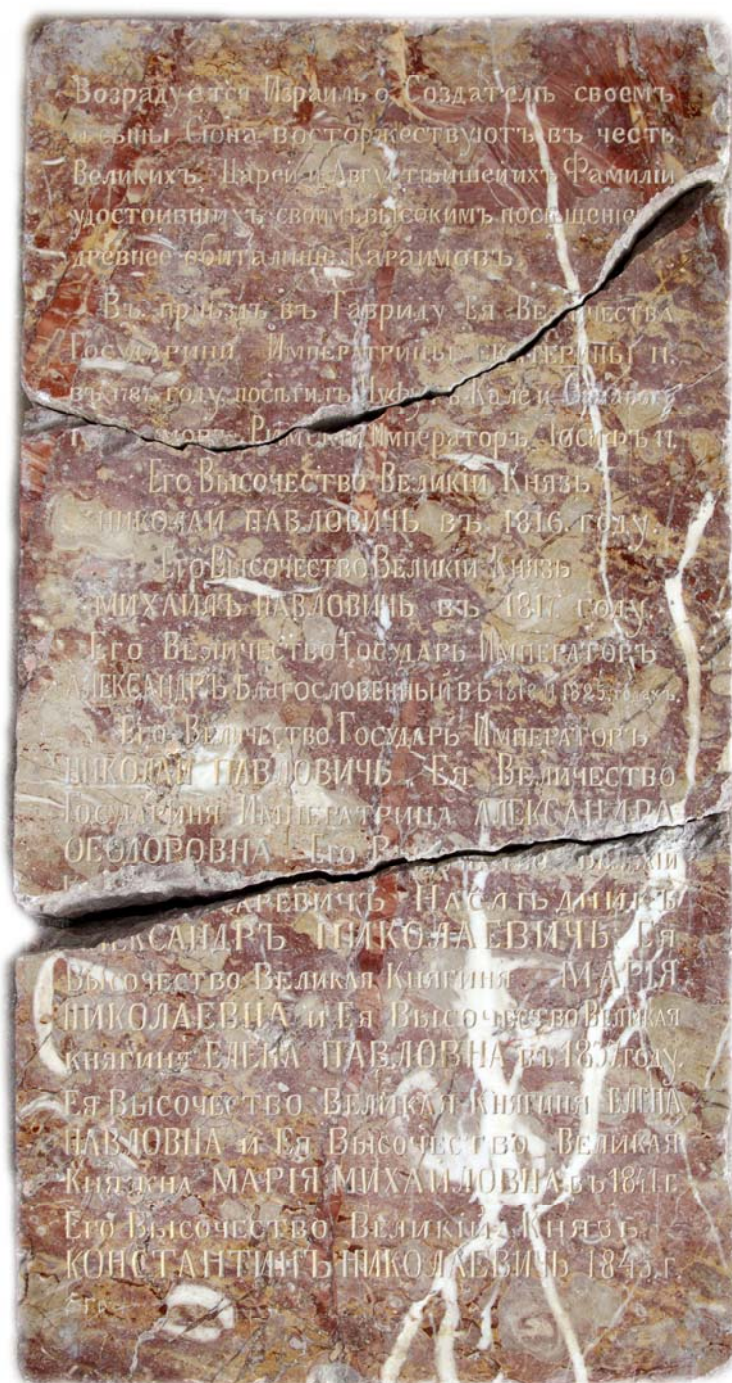 Возрадуется Израиль о Создателѣ своемъ
и сыны Сіона восторжествуютъ въ честь
Великихъ Царей и Августѣйшей ихъ Фамиліи
удостоившихъ своимъ высокимъ посѣщеніе
древнее обиталище Караимовъ
Въ приѣздъ въ Тавриду Ея Величества
Государини Императрицы ЕКАТЕРИНЫ II.
въ 1787 году, посѣтилъ Чуфутъ Кале и
Римскій Императоръ Іосифъ II.
Его Высочество Великій Князь
НИКОЛАЙ ПАВЛОВИЧЬ въ 1816. году.
Его Высочество Великій Князь
МИХАИЛЪ ПАВЛОВИЧЬ въ 1817. году.
Его Величество Государь Императоръ
АЛЕКСАНДРЪ Благословенный въ 1818 и 1825. годахъ.
Его Величество Государь Императоръ
НИКОЛАЙ ПАВЛОВИЧЬ, Ея Величество
Государиня Императрица АЛЕКСАНДРА
ѲЕОДОРОВНА Его
Наслѣдникъ
АЛЕКСАНДРЪ НИКОЛАЕВИЧЬ Ея
Высочество Великая Княгиня МАРІЯ
НИКОЛАЕВНА и Ея Высочество Великая
княгиня ЕЛЕНА ПАВЛОВНА въ 1837 году.
Ея Высочество Великая Княгиня ЕЛЕНА
ПАВЛОВНА и Ея Высочество Великая
Княжна МАРІЯ МИХАИЛОВНА въ 1841. г.
Его Высочество Великій Князь
КОНСТАНТИНЪ НИКОЛАЕВИЧЬ 1845. г.